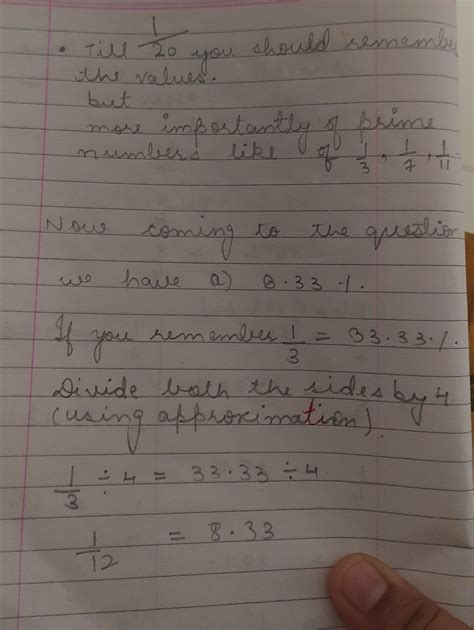 • Till 1/20 you should remember
the values.
but
more importantly of prime
numbers like of 1/3, 1/7, 1/11
Now coming to the question
we have a) 8.33 %.
If you remember 1/3 = 33.33 %.
Divide both the sides by 4
(using approximation).
1/3 ÷ 4 = 33.33 ÷ 4
1/12 = 8.33